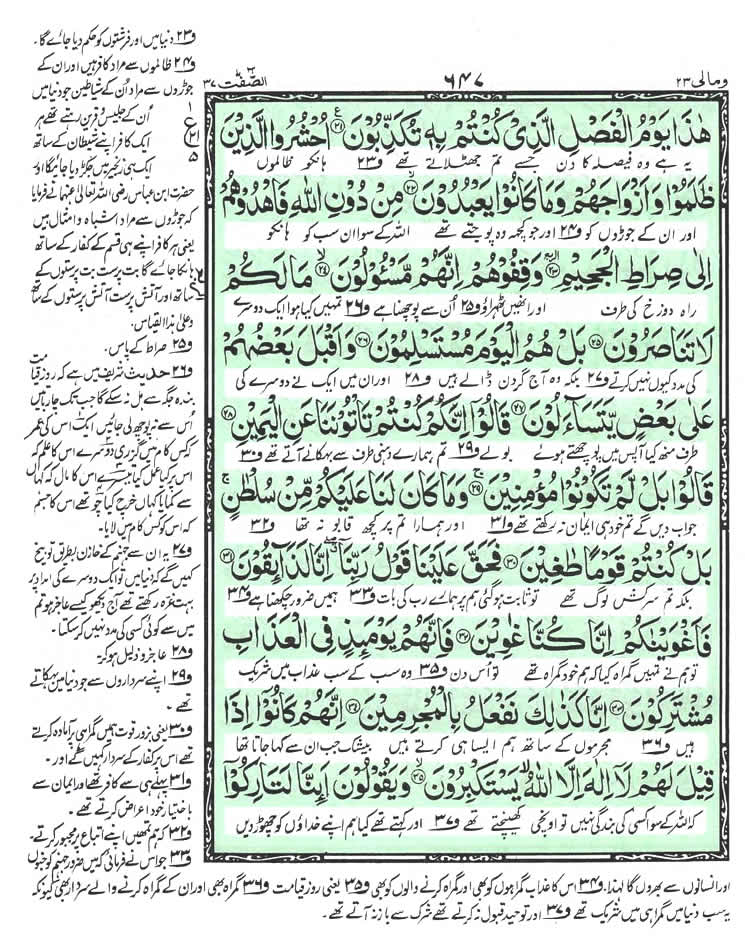 ومالی ۲۳
۶۴۷
الصّٰٓفّٰت ۳۷
هٰذَا يَوْمُ الْفَصْلِ الَّذِىْ كُنْتُمْ بِهٖ تُكَذِّبُوْنَ ۲۱ اُحْشُرُوا الَّذِيْنَ
یہ ہے وہ فیصلہ کا دن جسے تم جھٹلاتے تھے ف۲۳ ہانکو ظالموں
ظَلَمُوْا وَاَزْوَاجَهُمْ وَمَا كَانُوْا يَعْبُدُوْنَ ۲۲ مِنْ دُوْنِ اللّٰهِ فَاهْدُوْهُمْ
اور ان کے جوڑوں کو ف۲۴ اور جو کچھ وہ پوجتے تھے اللہ کے سوا ان سب کو ہانکو
اِلٰى صِرَاطِ الْجَحِيْمِ ۲۳ وَقِفُوْهُمْ اِنَّهُمْ مَّسْـُٔوْلُوْنَ ۲۴ مَا لَكُمْ
راہ دوزخ کی طرف اور انھیں ٹھہراؤ ف۲۵ اُن سے پوچھنا ہے ف۲۶ تمہیں کیا ہوا ایک دوسرے
لَا تَنَاصَرُوْنَ ۲۵ بَلْ هُمُ الْيَوْمَ مُسْتَسْلِمُوْنَ ۲۶ وَاَقْبَلَ بَعْضُهُمْ
کی مدد کیوں نہیں کرتے ف۲۷ بلکہ وہ آج گردن ڈالے ہیں ف۲۸ اور ان میں ایک نے دوسرے کی
عَلٰى بَعْضٍ يَّتَسَآءَلُوْنَ ۲۷ قَالُوْٓا اِنَّكُمْ كُنْتُمْ تَاْتُوْنَنَا عَنِ الْيَمِيْنِ ۲۸
طرف منھ کیا آپس میں پوچھتے ہوئے بولے ف۲۹ تم ہمارے دہنی طرف سے بہکانے آتے تھے ف۳۰
قَالُوْا بَلْ لَّمْ تَكُوْنُوْا مُؤْمِنِيْنَ ۲۹ وَمَا كَانَ لَنَا عَلَيْكُمْ مِّنْ سُلْطٰنٍ
جواب دیں گے تم خود ہی ایمان نہ رکھتے تھے ف۳۱ اور ہمارا تم پر کچھ قابو نہ تھا ف۳۲
بَلْ كُنْتُمْ قَوْمًا طٰغِيْنَ ۳۰ فَحَقَّ عَلَيْنَا قَوْلُ رَبِّنَآ اِنَّا لَذَآئِقُوْنَ ۳۱
بلکہ تم سرکش لوگ تھے تو ثابت ہو گئی ہم پر ہمارے رب کی بات ف۳۳ ہمیں ضرور چکھنا ہے ف۳۴
فَاَغْوَيْنٰكُمْ اِنَّا كُنَّا غٰوِيْنَ ۳۲ فَاِنَّهُمْ يَوْمَئِذٍ فِى الْعَذَابِ
تو ہم نے تمہیں گمراہ کیا کہ ہم خود گمراہ تھے تو اُس دن ف۳۵ وہ سب کے سب عذاب میں شریک
مُشْتَرِكُوْنَ ۳۳ اِنَّا كَذٰلِكَ نَفْعَلُ بِالْمُجْرِمِيْنَ ۳۴ اِنَّهُمْ كَانُوْٓا اِذَا
ہیں ف۳۶ مجرموں کے ساتھ ہم ایسا ہی کرتے ہیں بیشک جب ان سے کہا جاتا تھا
قِيْلَ لَهُمْ لَآ اِلٰهَ اِلَّا اللّٰهُ يَسْتَكْبِرُوْنَ ۳۵ وَيَقُوْلُوْنَ اَئِنَّا لَتَارِكُوْٓا
کہ اللہ کے سوا کسی کی بندگی نہیں تو اونچی کھینچتے تھے ف۳۷ اور کہتے تھے کیا ہم اپنے خداؤں کو چھوڑ دیں
ف۲۳ دنیا میں اور فرشتوں کو حکم دیا جائے گا۔
ف۲۴ ظالموں سے مراد کافر ہیں اور ان کے
جوڑوں سے مراد اُن کے شیاطین جو دنیا میں
اُن کے جلیس و قرین رہتے تھے ہر
ایک کافر اپنے شیطان کے ساتھ
ایک ہی زنجیر میں جکڑ دیا جائیگا اور
حضرت ابن عباس رضی اللہ تعالیٰ عنہما نے فرمایا
کہ جوڑوں سے مراد اشباہ و امثال ہیں
یعنی ہر کافر اپنے ہی قسم کے کفار کے ساتھ
ہانکا جائے گا بت پرست بت پرستوں کے
ساتھ اور آتش پرست آتش پرستوں کے ساتھ
وعلیٰ ہذا القیاس۔
ف۲۵ صراط کے پاس۔
ف۲۶ حدیث شریف میں ہے کہ روز قیامت
بندہ جگہ سے ہل نہ سکے گا جب تک چار باتیں
اُس سے نہ پوچھ لی جائیں ایک اس کی عمر
کہ کس کام میں گزری دوسرے اس کا علم کہ
اس پر کیا عمل کیا تیسرے اس کا مال کہ کہاں
سے کمایا کہاں خرچ کیا چوتھے اس کا جسم
کہ اس کو کس کام میں لایا۔
ف۲۷ یہ ان سے جہنم کے خازن بطریق توبیخ
کہیں گے کہ دنیا میں تو ایک دوسرے کی امداد پر
بہت غرہ رکھتے تھے آج دیکھو کیسے عاجز ہو تم
میں سے کوئی کسی کی مدد نہیں کر سکتا۔
ف۲۸ عاجز و ذلیل ہو کر۔
ف۲۹ اپنے سرداروں سے جو دنیا میں بہکاتے
تھے۔
ف۳۰ یعنی بزور قوت ہمیں گمراہی پر آمادہ کرتے
تھے اس پر کفار کے سردار کہیں گے اور۔
ف۳۱ پہلے ہی سے کافر تھے اور ایمان سے
باختیار خود اعراض کرتے تھے۔
ف۳۲ کہ ہم تمھیں اپنے اتباع پر مجبور کرتے۔
ف۳۳ جو اس نے فرمائی کہ میں ضرور جہنم کو جنوں
اور انسانوں سے بھروں گا لہٰذا۔ ف۳۴ اس کا عذاب گمراہوں کو بھی اور گمراہ کرنے والوں کو بھی ف۳۵ یعنی روز قیامت ف۳۶ گمراہ بھی اور ان کے گمراہ کرنے والے سردار بھی کیونکہ
یہ سب دنیا میں گمراہی میں شریک تھے ف۳۷ اور توحید قبول نہ کرتے تھے شرک سے باز نہ آتے تھے۔